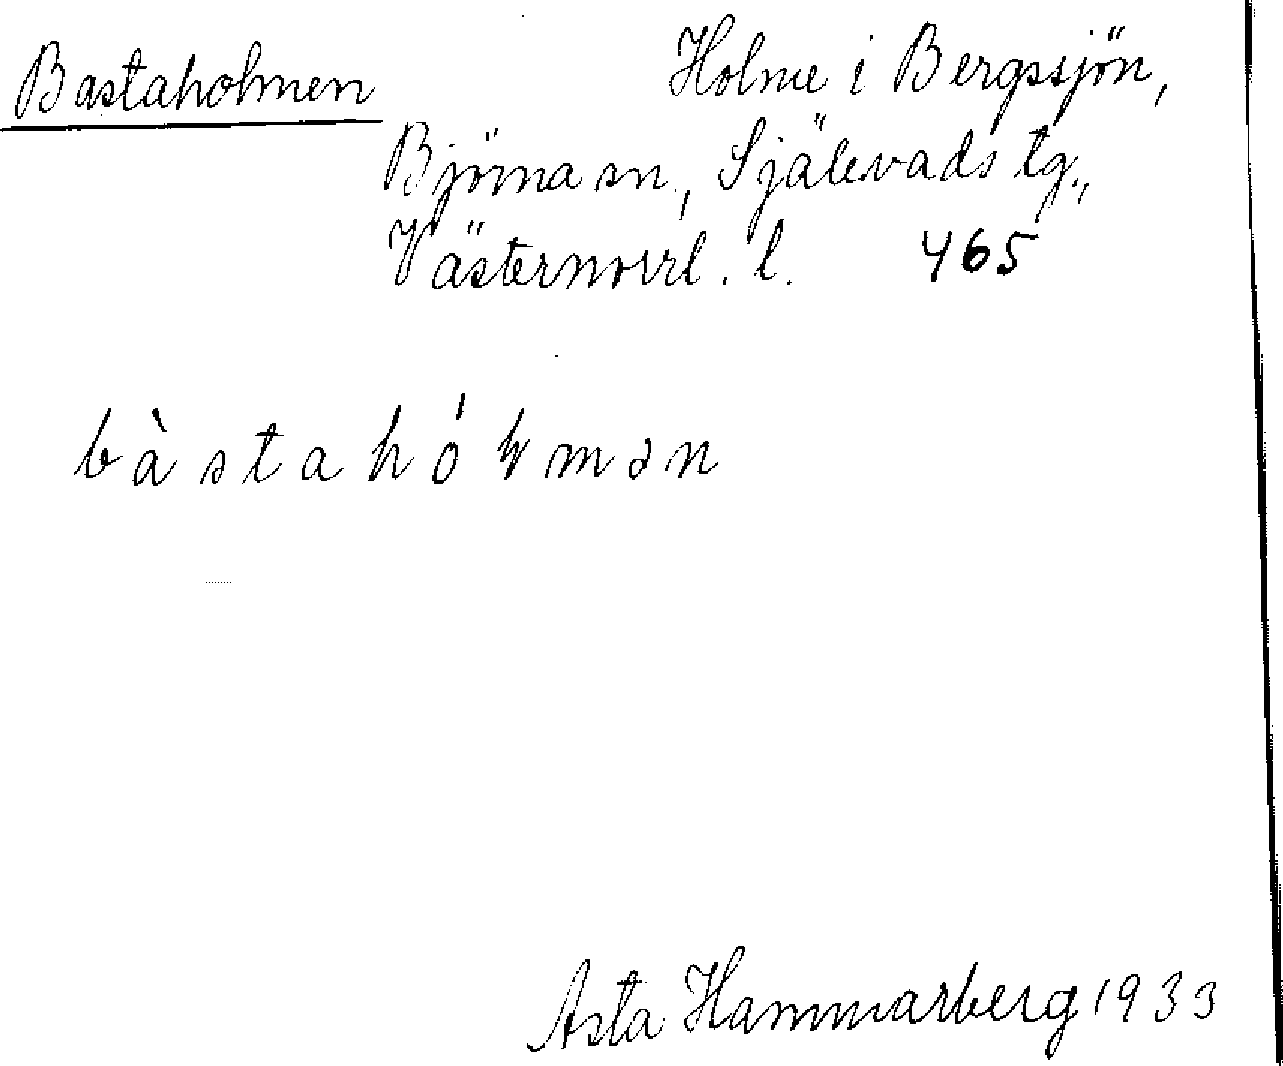 Bastaholmen Holme i Bergssjön,
Björna sn, Själevads tg.,
Västernorrl. l. 465
bàstahó mən
Asta Hammarberg 1933